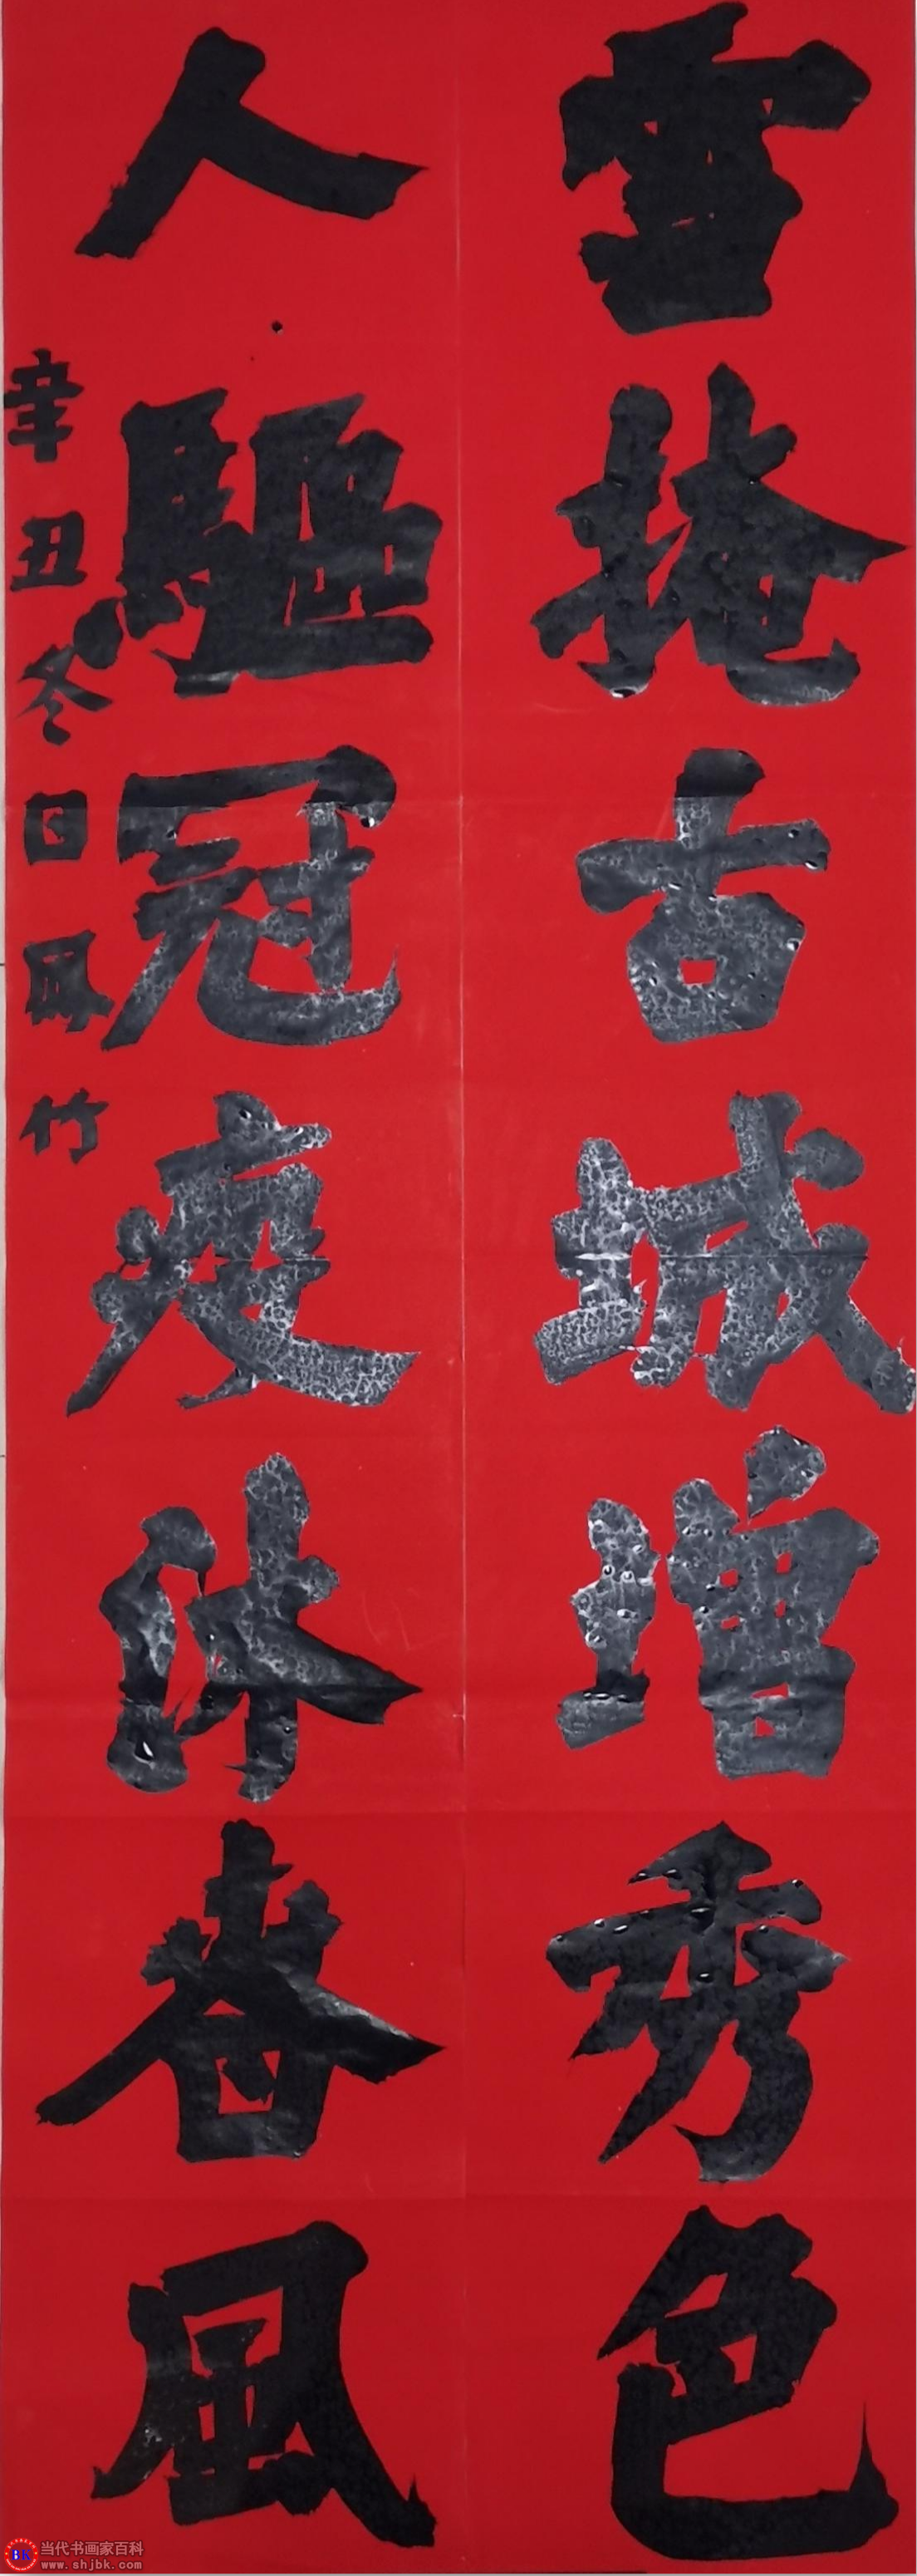 雪掩古城增秀色
人驅冠疫沐春風
辛丑冬日風竹
当代书画家百科
www.shjbk.com